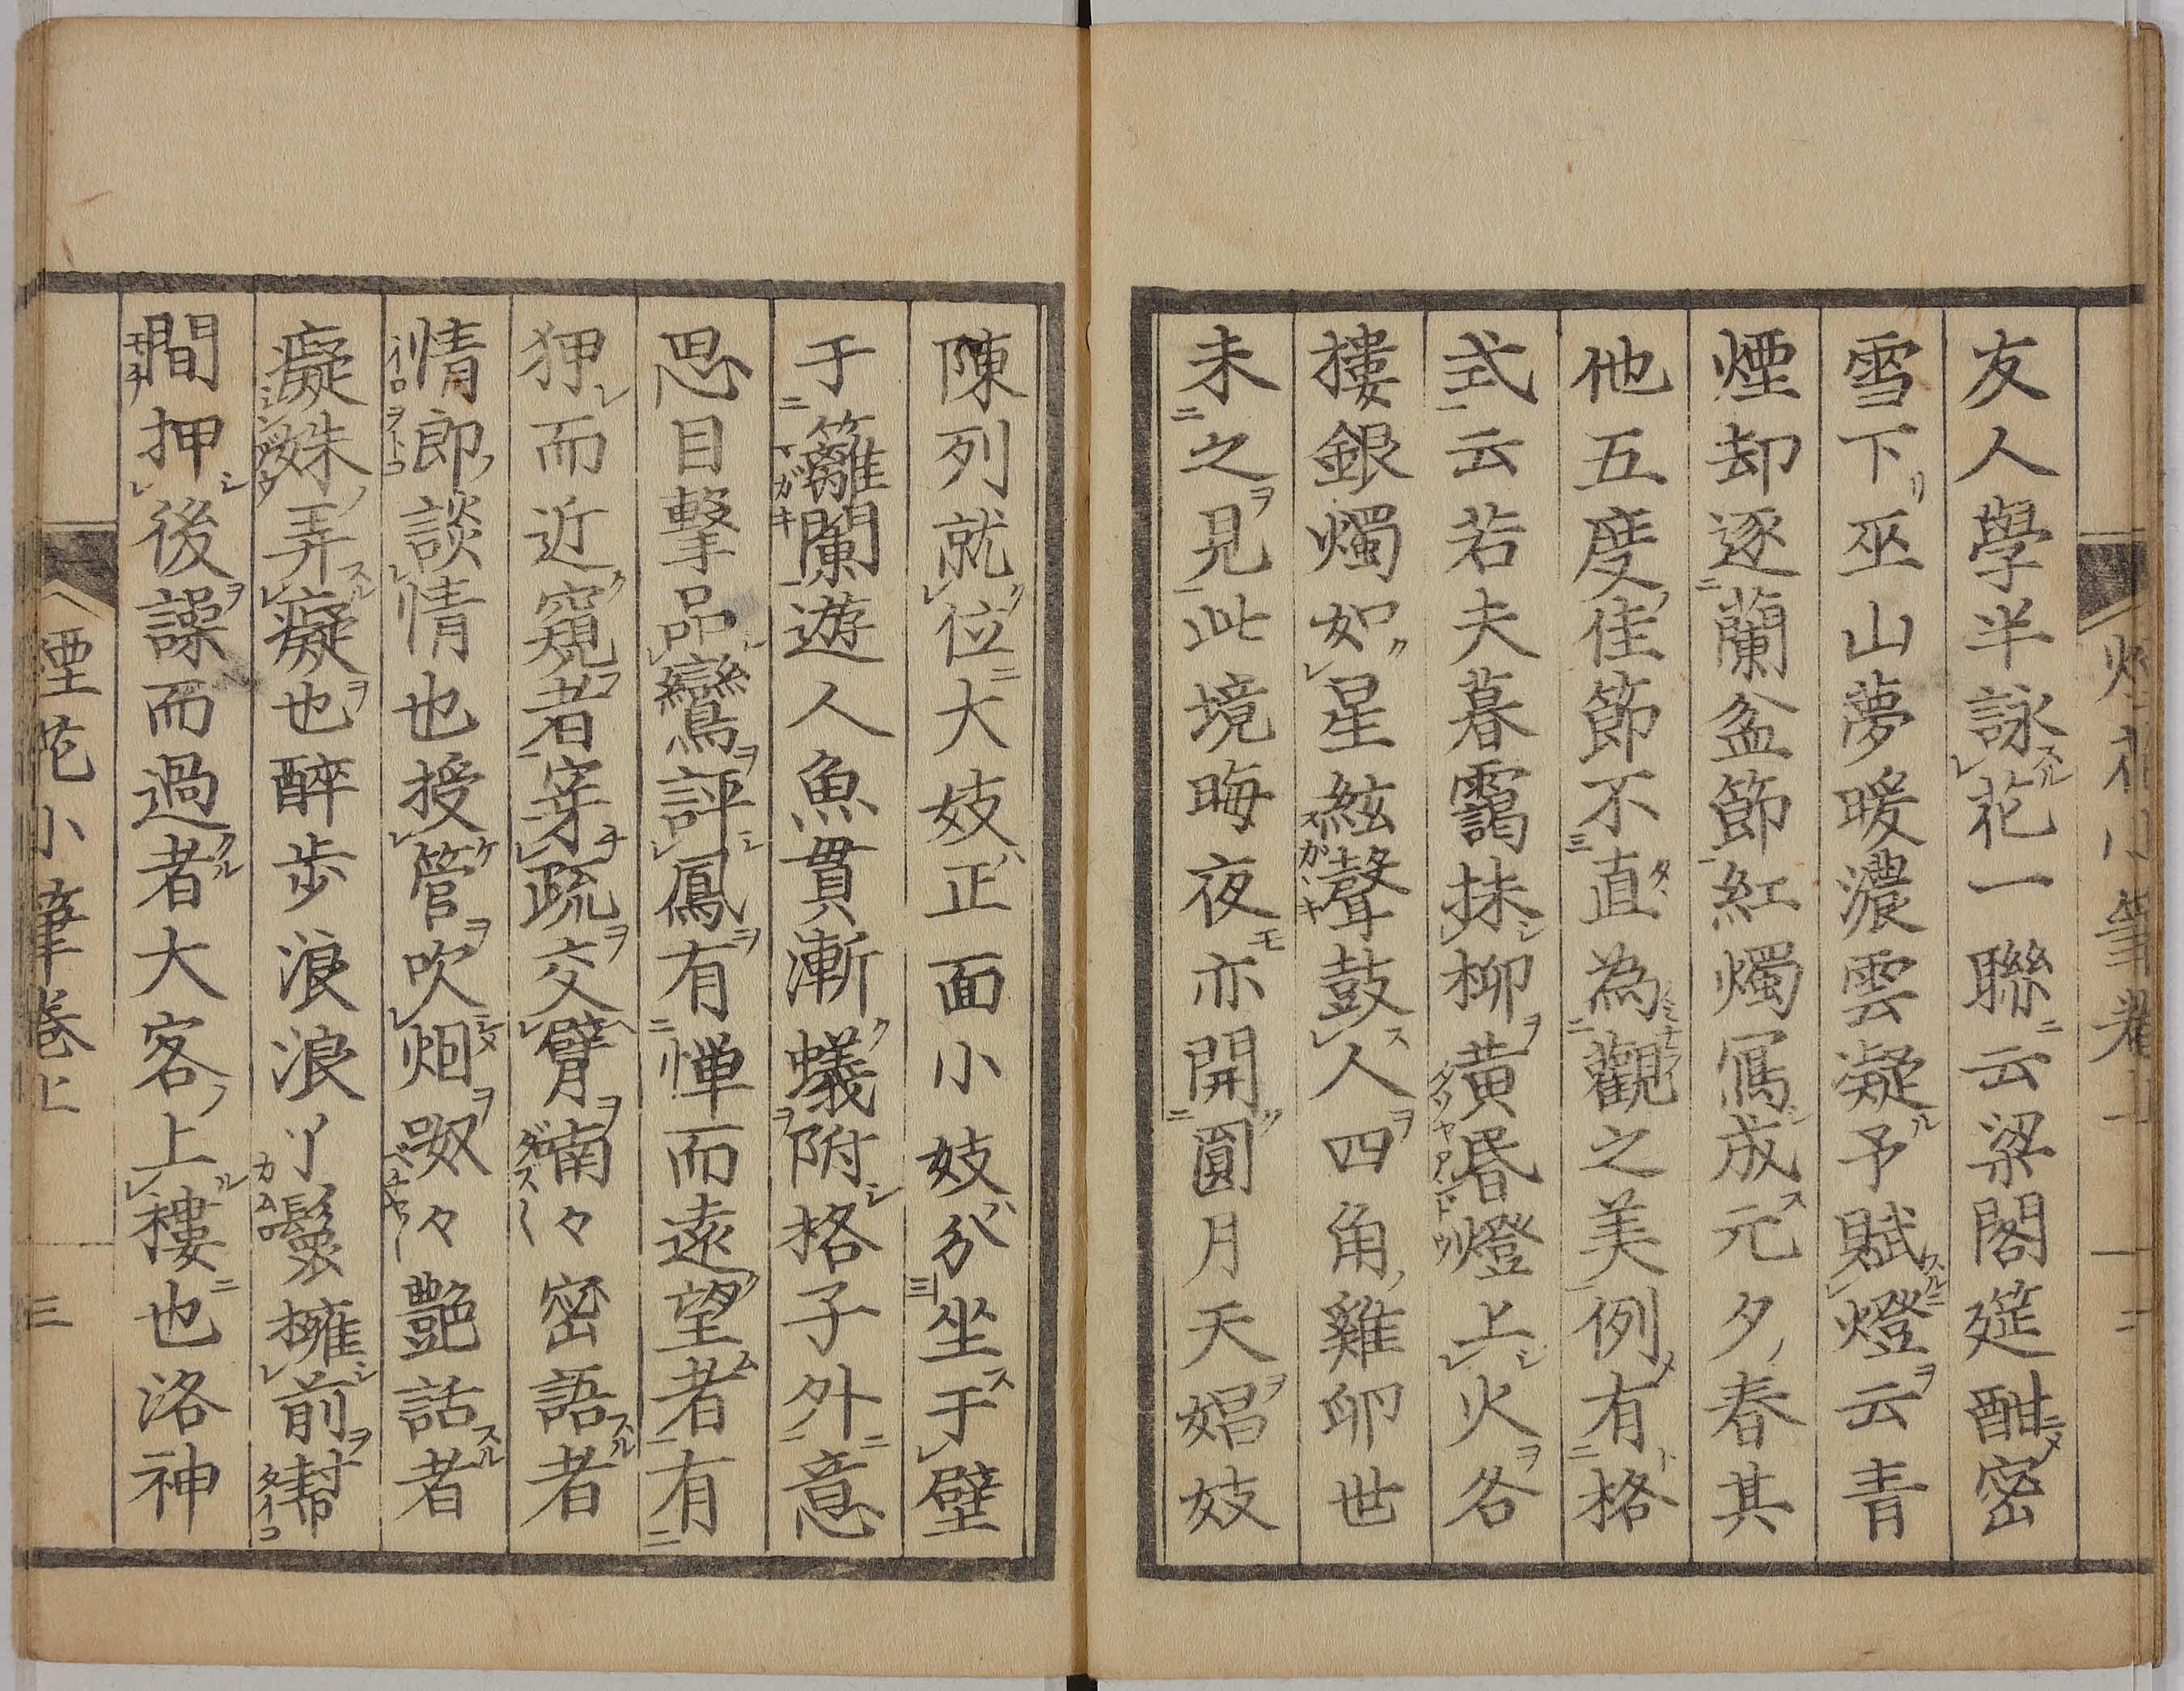 友人學半詠花一聯云梁閣筵酣密
雪下巫山夢暖濃雲凝予賦燈云青
煙却逐蘭盆節紅燭寫成元夕春其
他五度佳節不直為觀之美例有格
式云若夫暮靄抹柳黃昏燈上火各
樓銀燭如星絃聲鼓人四角雞卵世
未之見此境晦夜亦開圓月天娼妓
陳列就位大妓正面小妓分坐于壁
于籬闌遊人魚貫漸蟻附格子外意
思目擊品鸞評鳳有憚而遠望者有
狎而近窺者穿疏交臂喃々密語者
情郎談情也授管吹烟呶々艷話者
癡姝弄癡也醉步浪浪丫鬟擁前幇
間押後譟而過者大客上樓也洛神
煙花小筆卷上 三